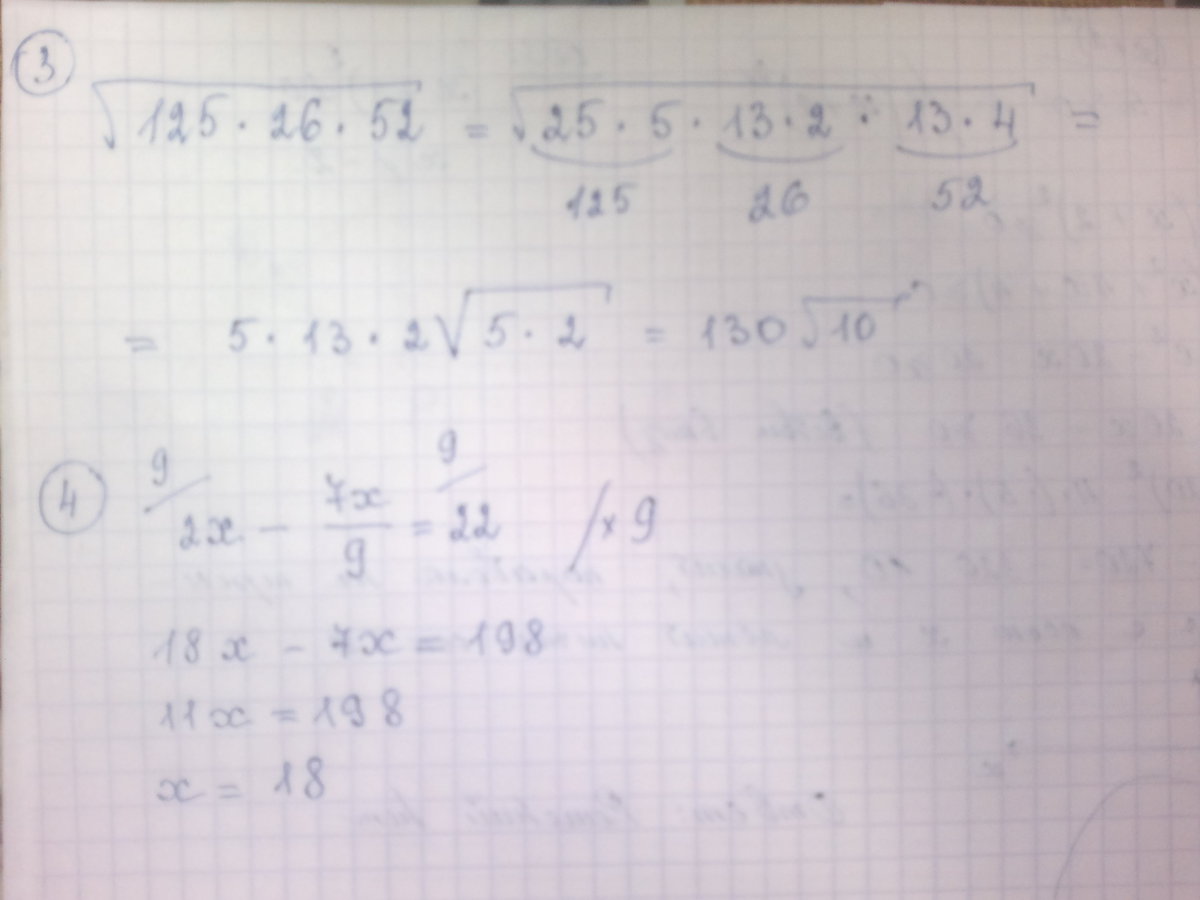 ③ √(125 · 26 · 52) = √(25 · 5 · 13 · 2 · 13 · 4) =
125 26 52
= 5 · 13 · 2 √(5 · 2) = 130 √10
9/ 9/
④ 2x - 7x/9 = 22 / × 9
18x - 7x = 198
11x = 198
x = 18